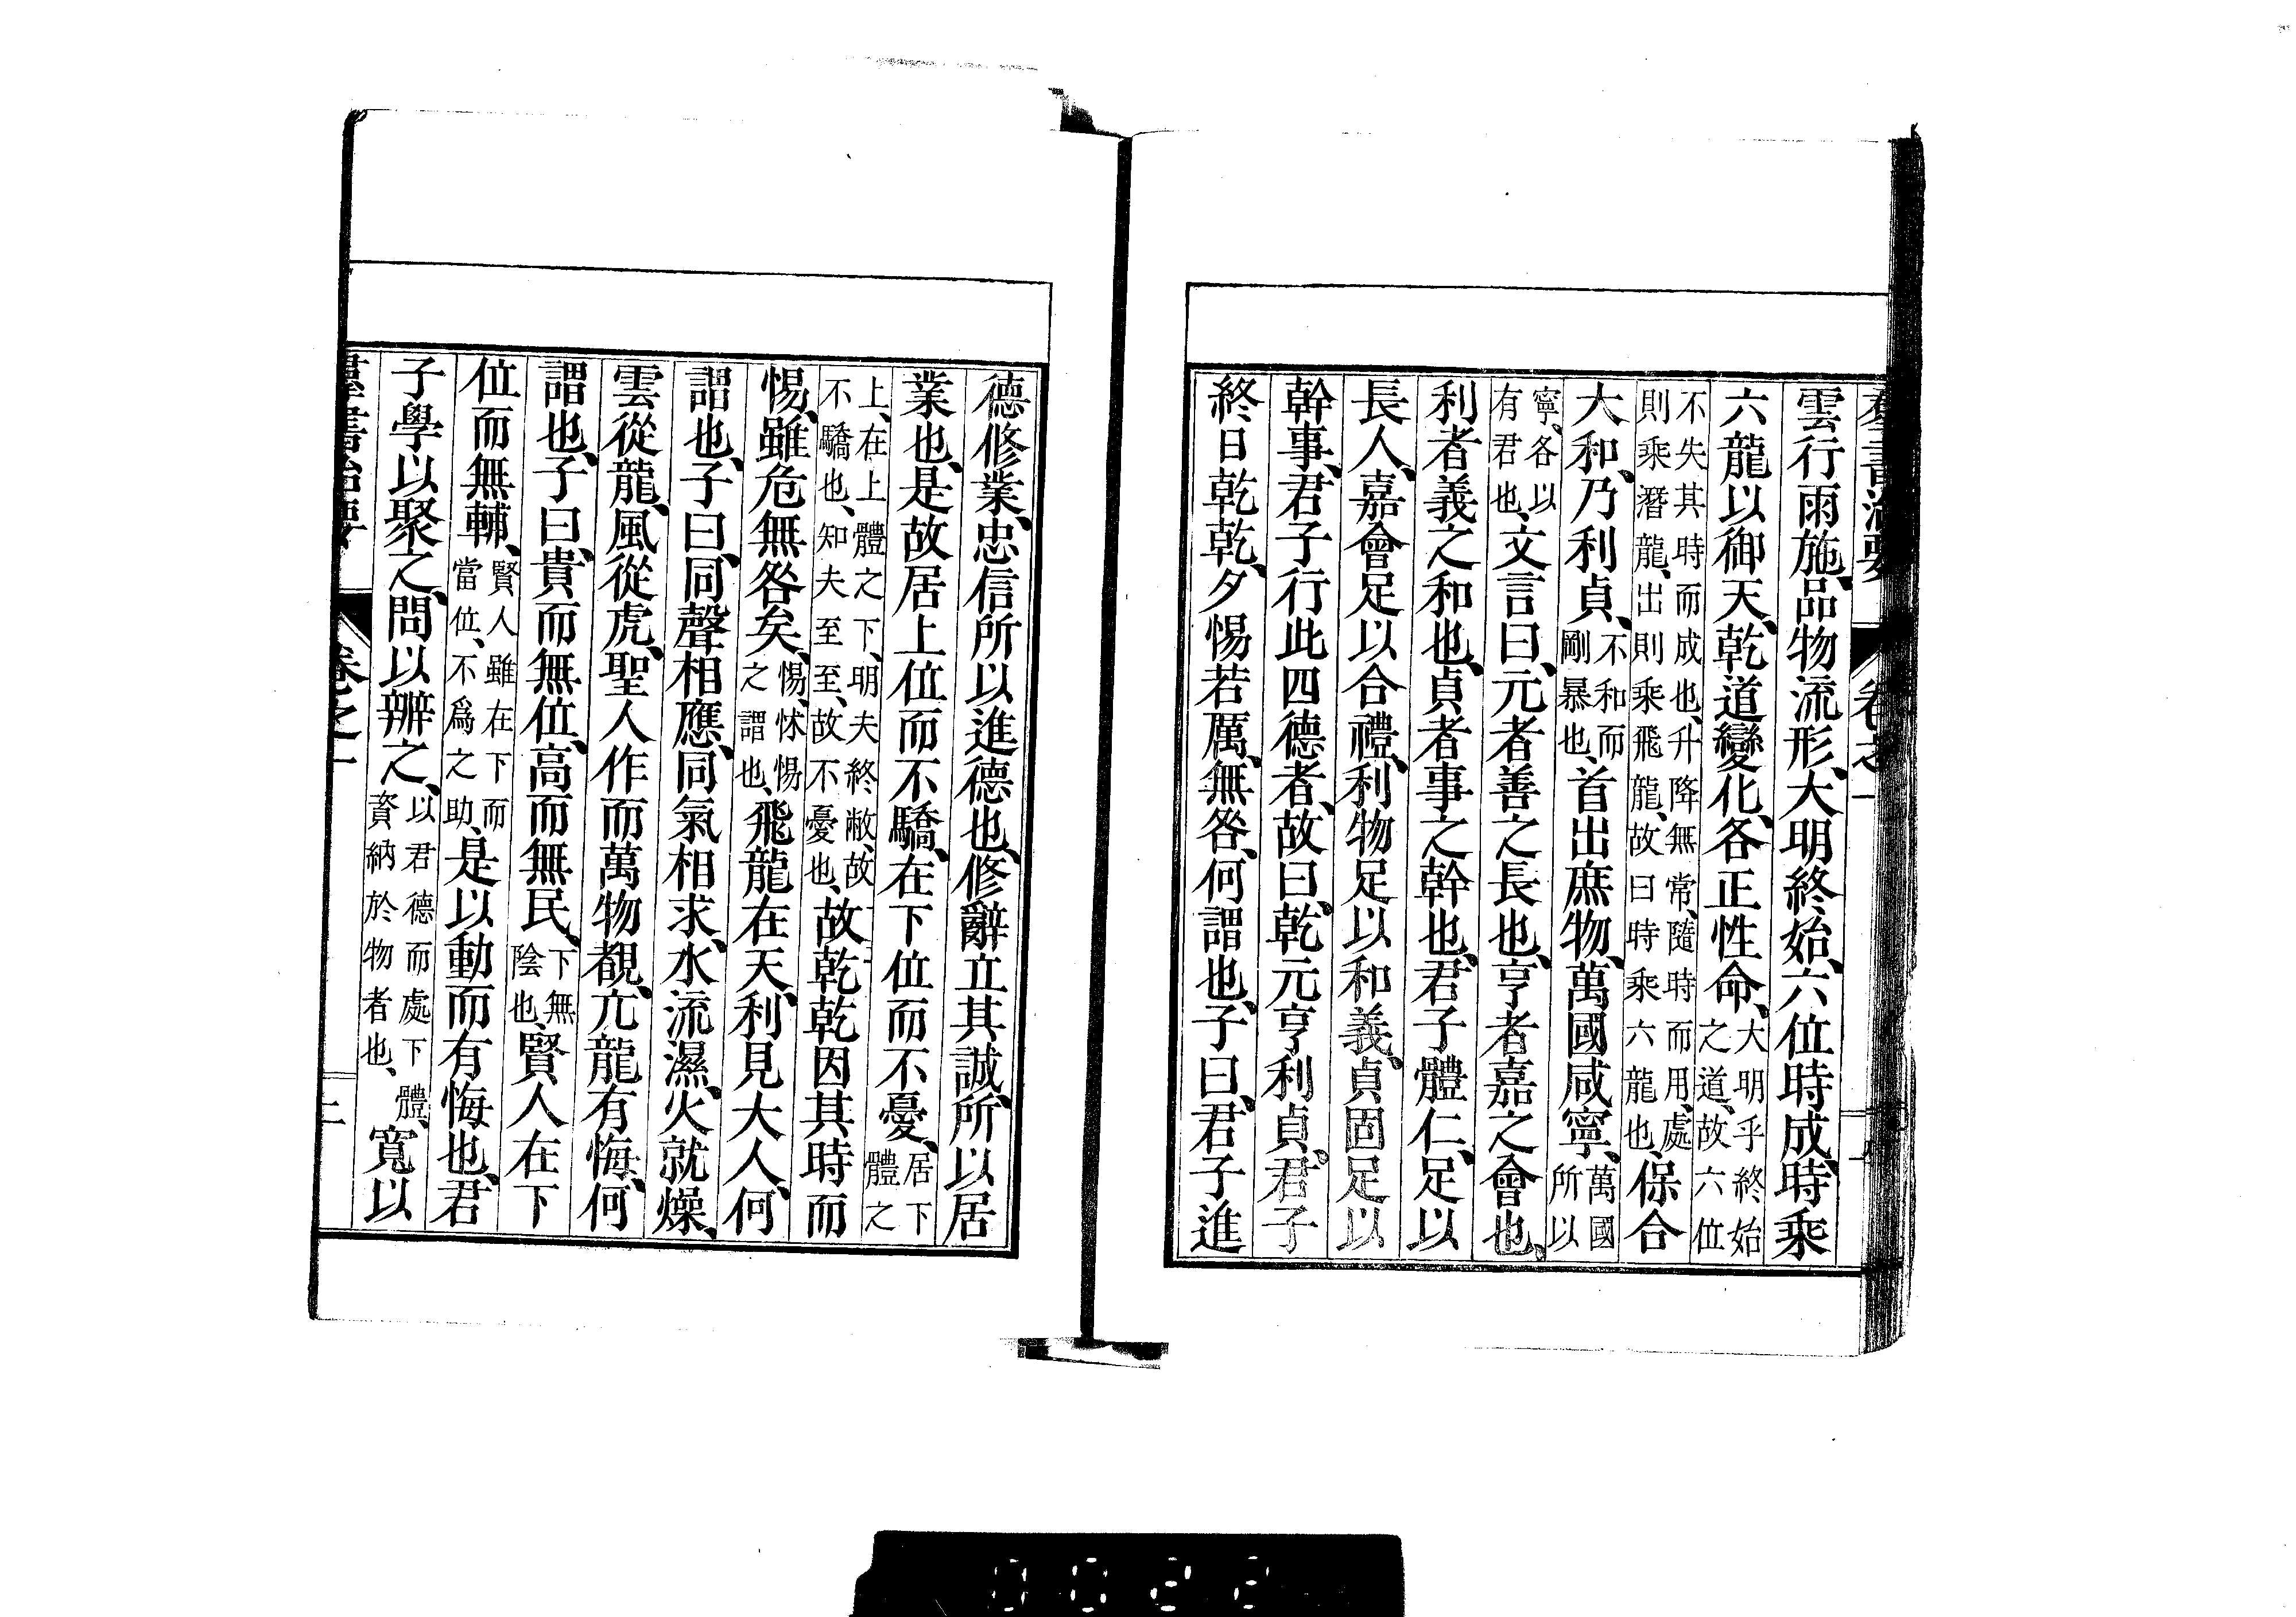 羣書治要 卷之一
雲行雨施、品物流形、大明終始、六位時成、時乘
六龍以御天、乾道變化、各正性命、大明乎終始之道、故六位
不失其時而成也、升降無常、隨時而用、處則乘潛龍、出則乘飛龍、故曰時乘六龍也、保合
大和、乃利貞、不和而剛暴也、首出庶物、萬國咸寧、萬國所以
寧、各以有君也、文言曰、元者善之長也、亨者嘉之會也、
利者義之和也、貞者事之幹也、君子體仁、足以
長人、嘉會足以合禮、利物足以和義、貞固足以
幹事、君子行此四德者、故曰、乾元亨利貞、君子
終日乾乾、夕惕若厲、無咎、何謂也、子曰、君子進
德修業、忠信所以進德也、修辭立其誠、所以居
業也、是故居上位而不驕、在下位而不憂、居下體之
上、在上體之下、明夫終敝、故不驕也、知夫至至、故不憂也、故乾乾因其時而
惕、雖危無咎矣、惕、怵惕之謂也、飛龍在天、利見大人、何
謂也、子曰、同聲相應、同氣相求、水流濕、火就燥、
雲從龍、風從虎、聖人作而萬物覩、亢龍有悔、何
謂也、子曰、貴而無位、高而無民、下無陰也、賢人在下
位而無輔、賢人雖在下而當位、不爲之助、是以動而有悔也、君
子學以聚之、問以辨之、以君德而處下體、資納於物者也、寬以
羣書治要 卷之一 二
0022